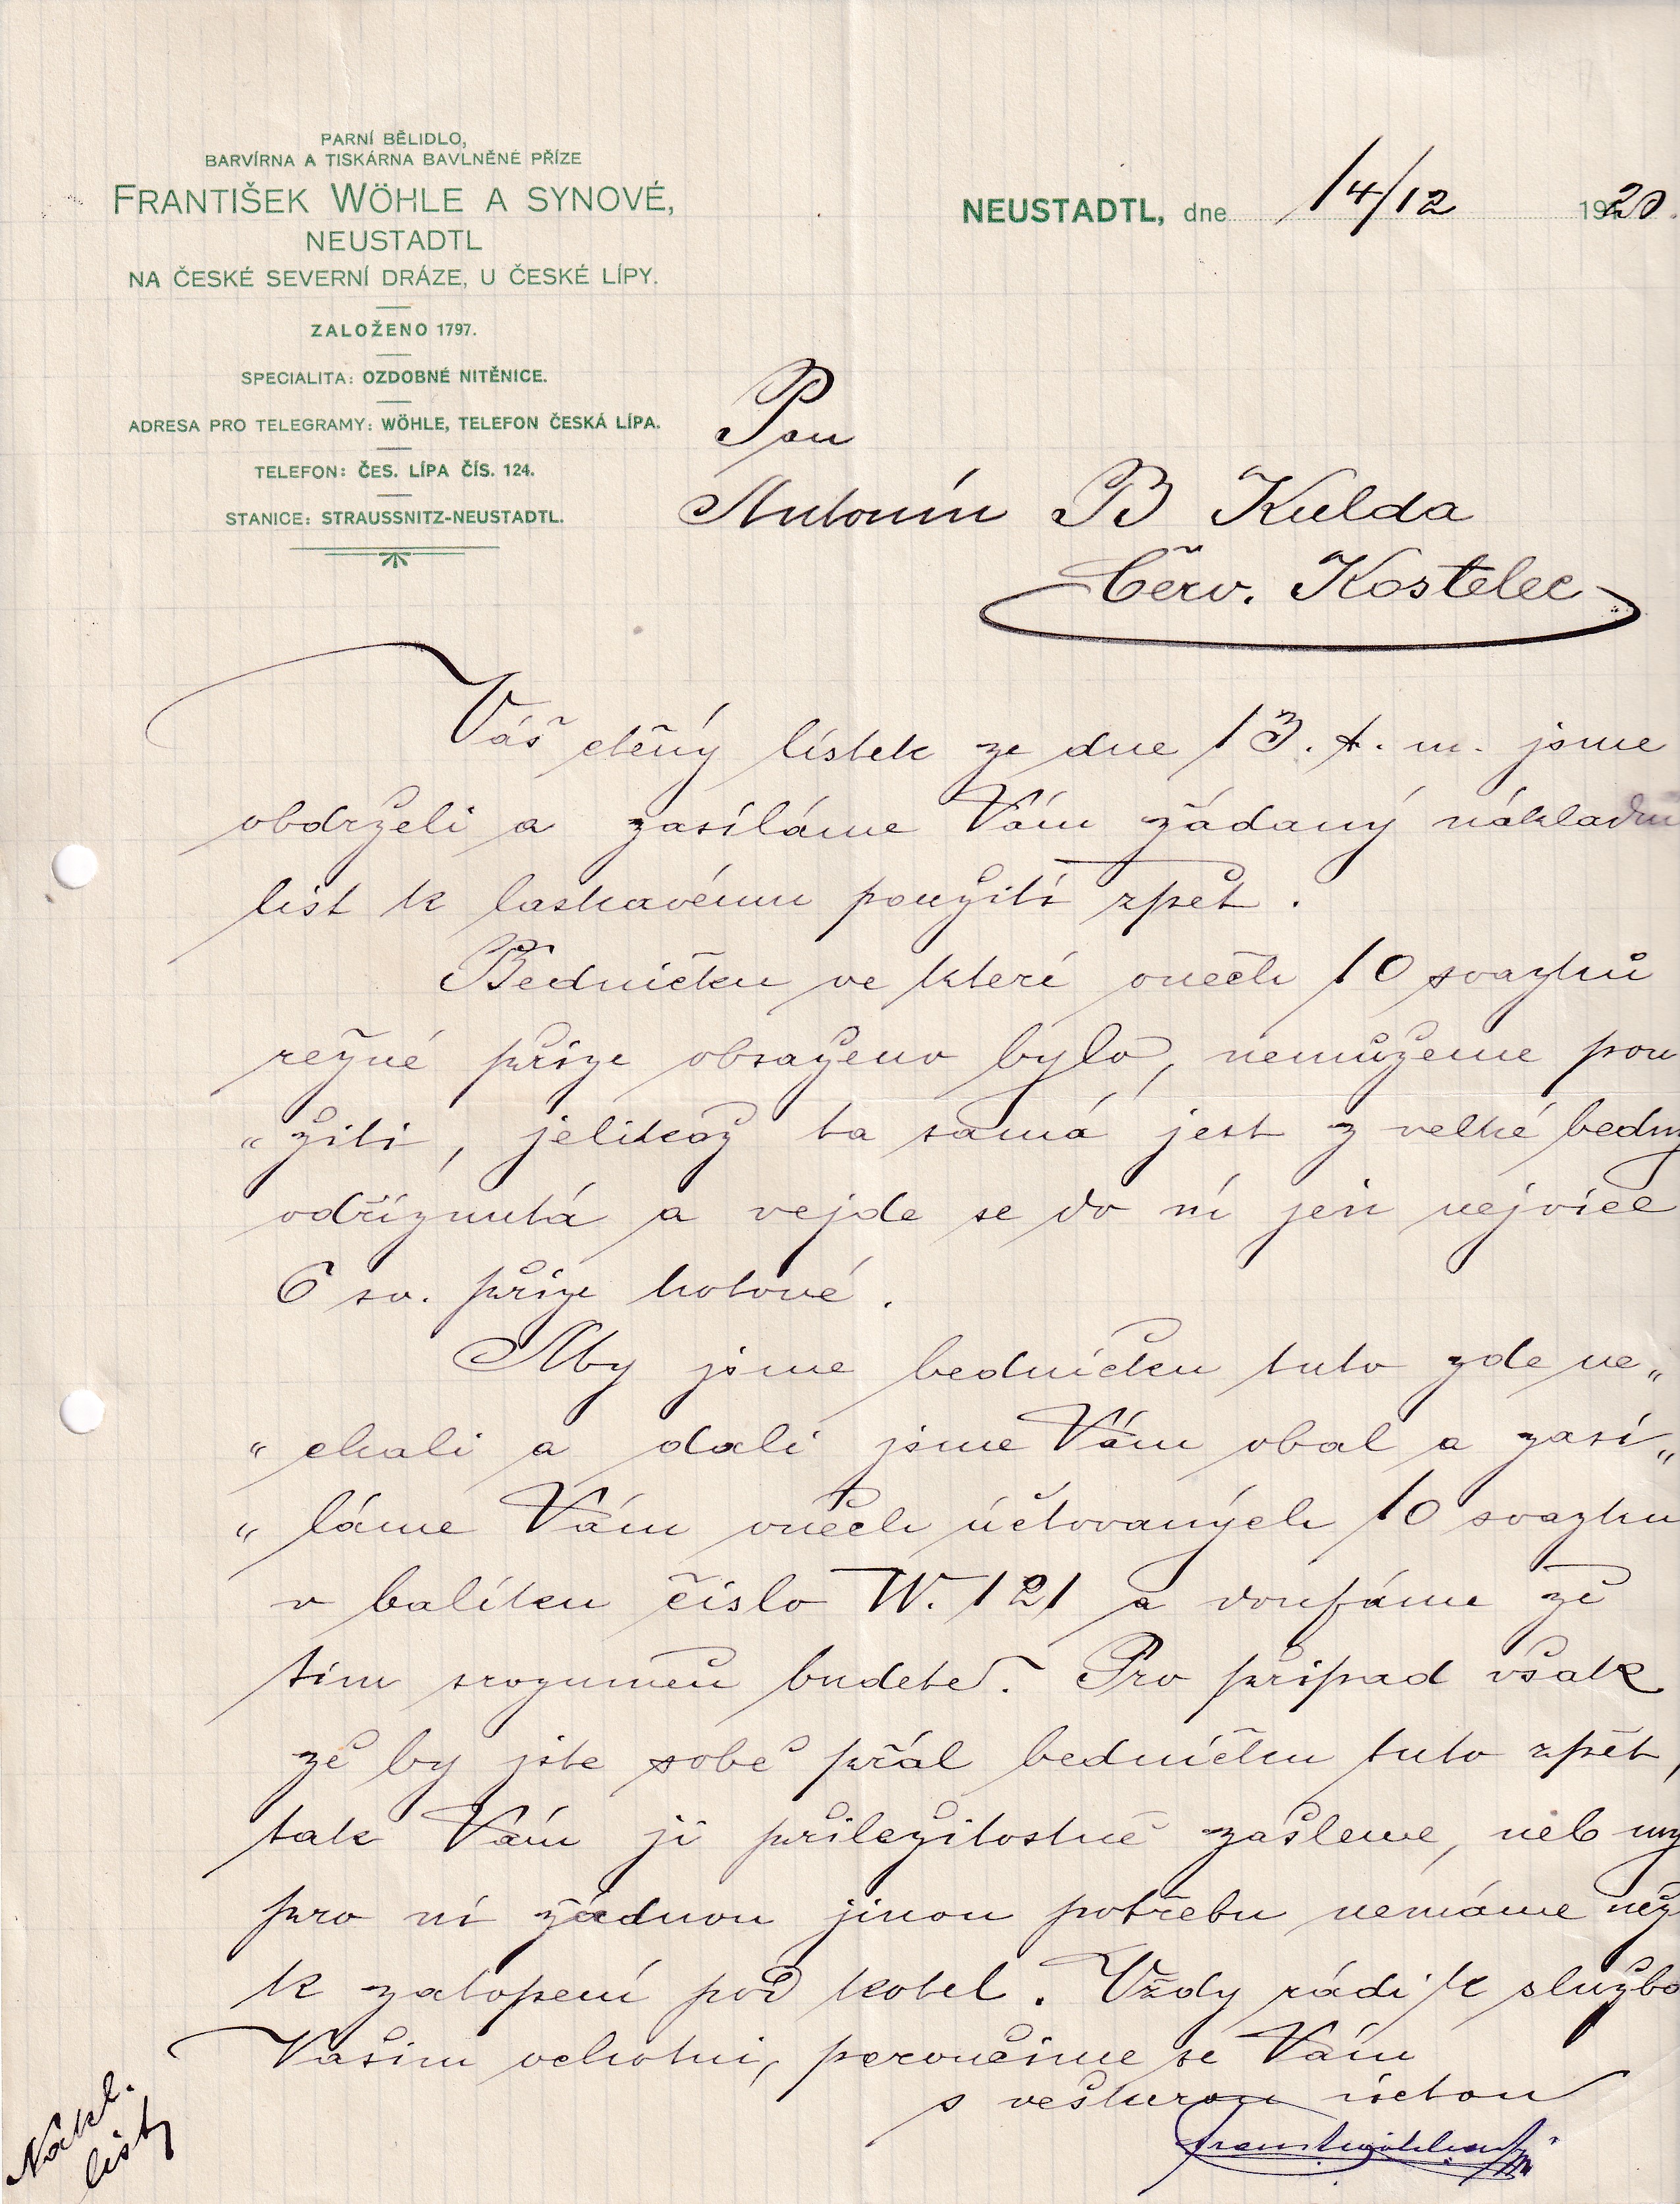 PARNÍ BĚLIDLO,
BARVÍRNA A TISKÁRNA BAVLNĚNÉ PŘÍZE
FRANTIŠEK WÖHLE A SYNOVÉ,
NEUSTADTL
NA ČESKÉ SEVERNÍ DRÁZE, U ČESKÉ LÍPY.
ZALOŽENO 1797.
SPECIALITA: OZDOBNÉ NITĚNICE.
ADRESA PRO TELEGRAMY: WÖHLE, TELEFON ČESKÁ LÍPA.
TELEFON: ČES. LÍPA ČÍS. 124.
STANICE: STRAUSSNITZ-NEUSTADTL.
NEUSTADTL, dne 14/12 1920.
Pan
Antonín B Kulda
Červ. Kostelec
Váš ctěný lístek ze dne 13. t. m. jsme
obdrželi a zasíláme Vám žádaný nákladní
list k laskavému použití zpět.
Bedničku ve které oněch 10 svazků
režné příze obsaženo bylo, nemůžeme pou
„žíti, jelikož ta samá jest z velké bedny
odříznutá a vejde se do ní jen nejvíce
6 sv. příze hotové.
Aby jsme bedničku tuto zde ne„
„chali a dali jsme Vám obal a zasí„
„láme Vám oněch účtovaných 10 svazku
v balíku číslo W. 121 a doufáme že
tím srozuměn budete. Pro případ však
že by jste sobě přál bedničku tuto zpět,
tak Vám ji příležitostně zašleme, neb my
pro ní žádnou jinou potřebu nemáme než
k zatopení pod kotel. Vždy rádi k službá
Vašim ochotni, poroučíme se Vám
s veškerou úctou
Nákl.
listy